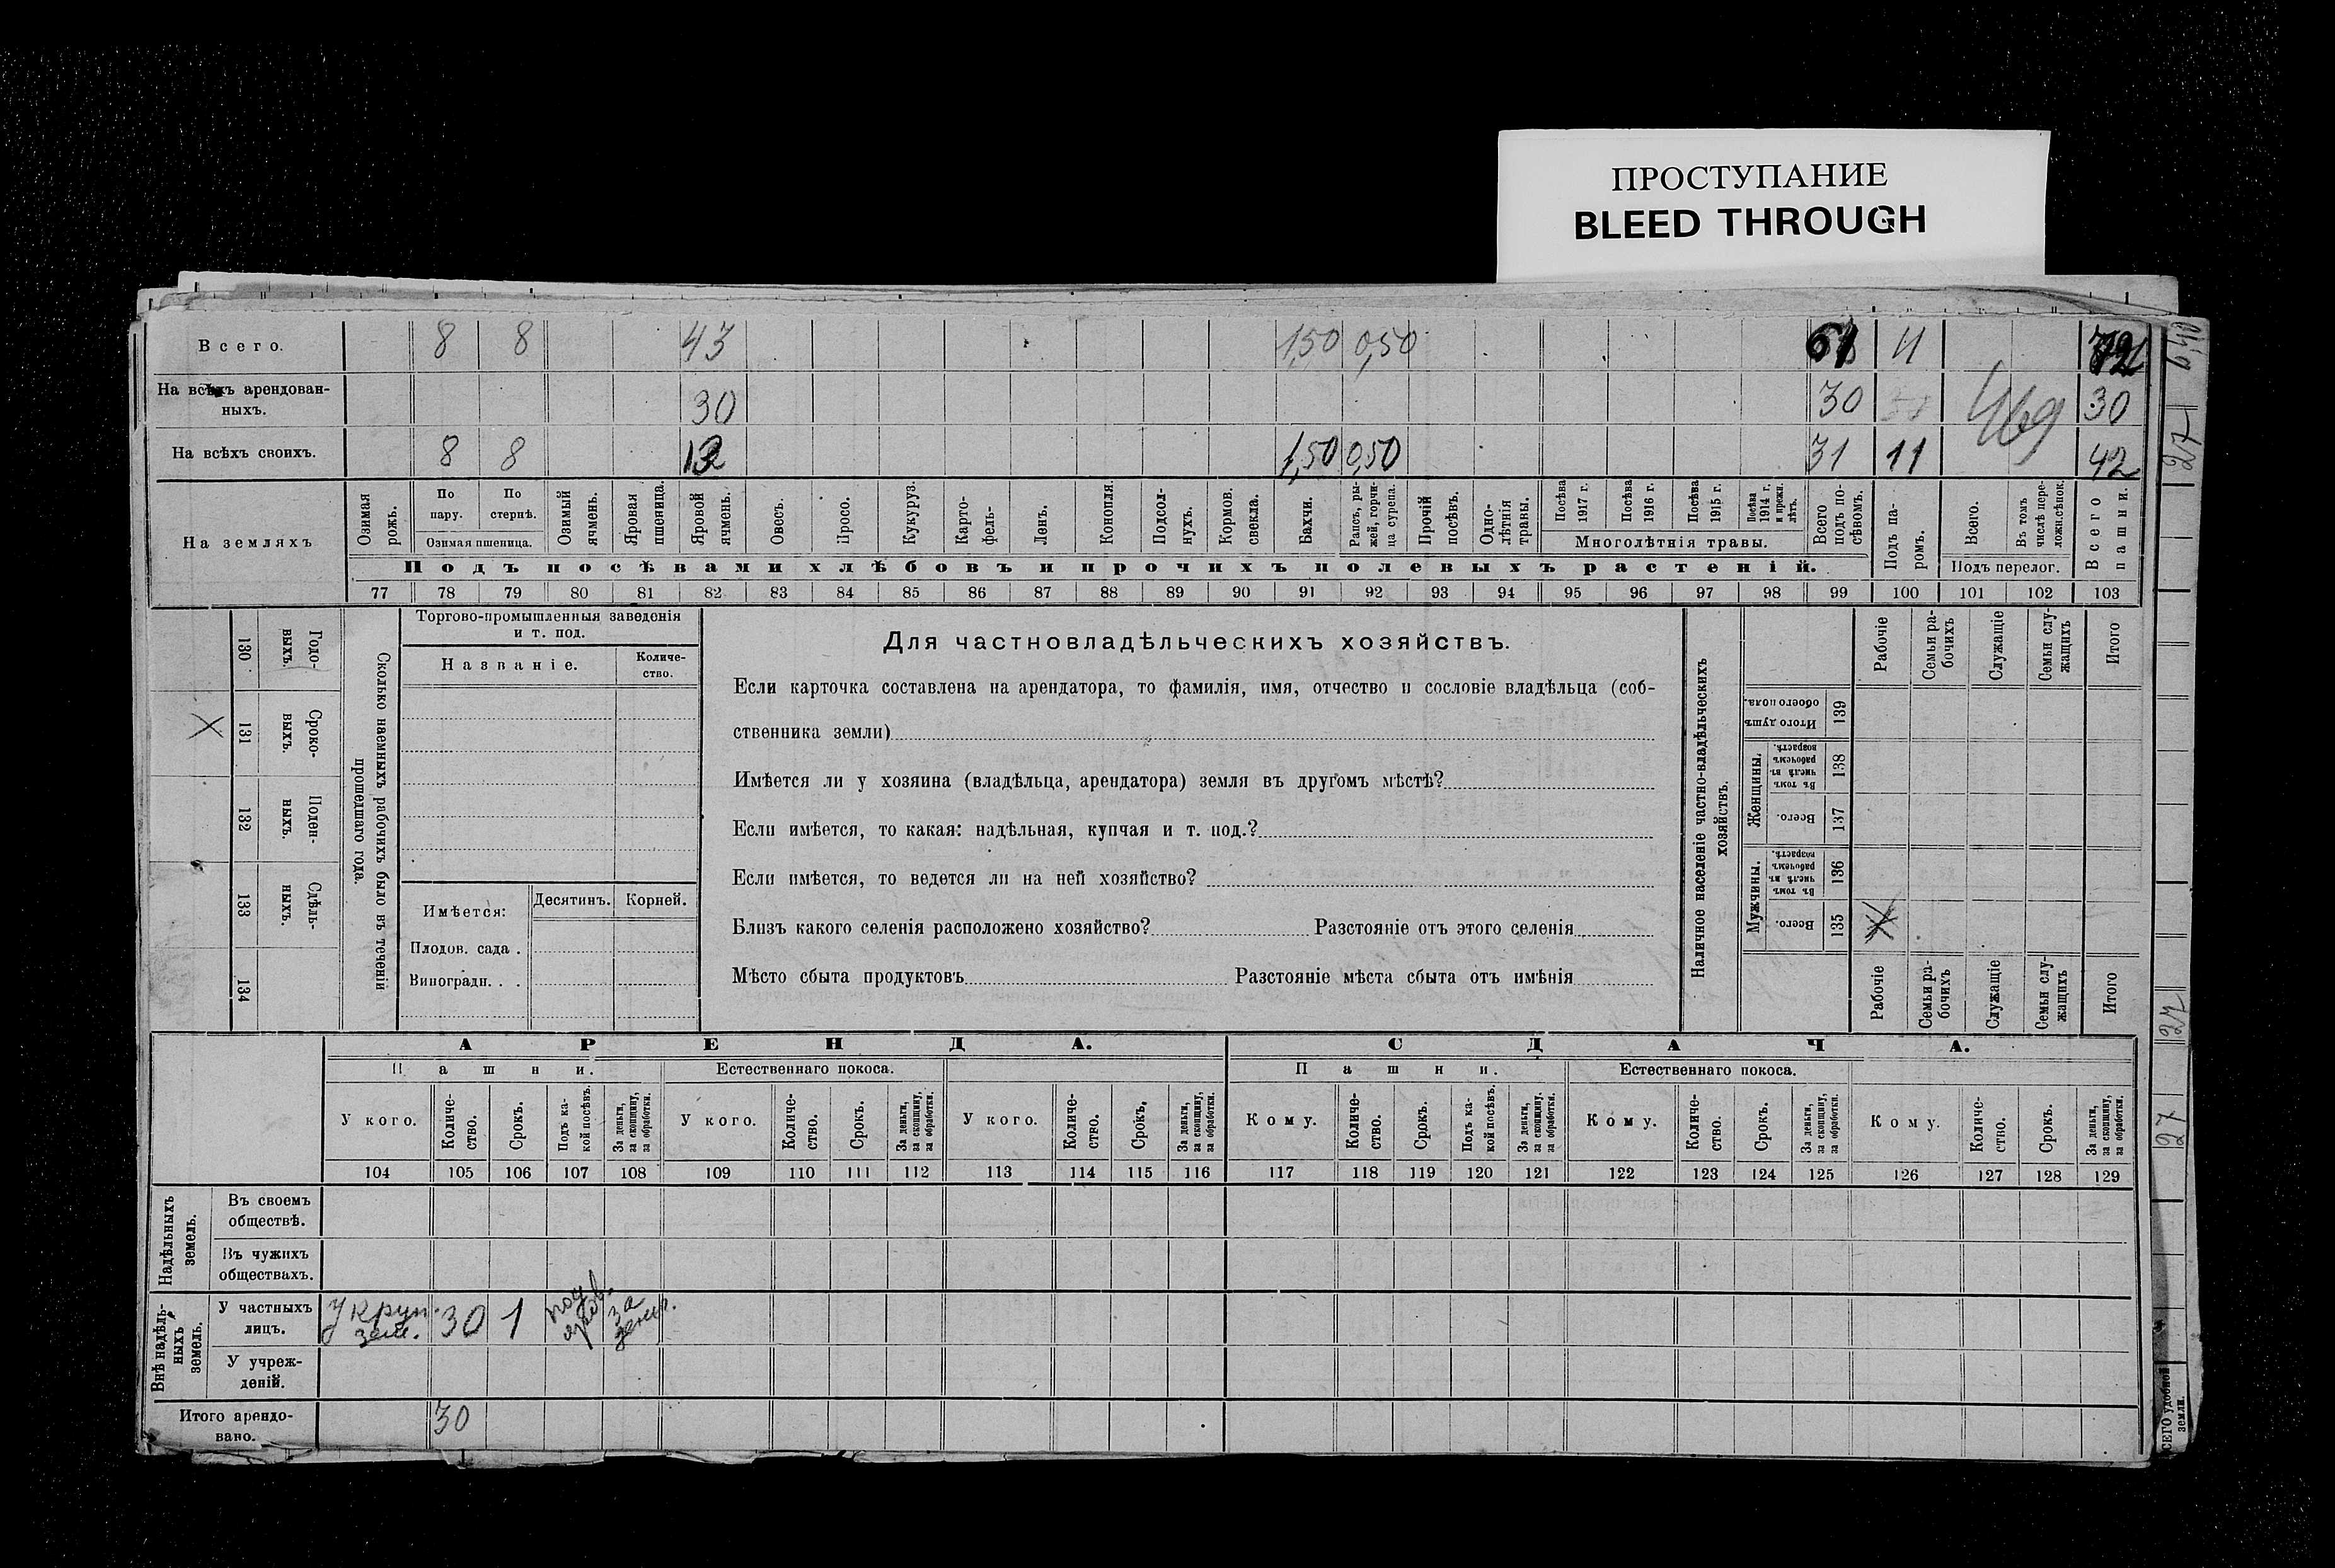 ПРОСТУПАНИЕ
BLEED THROUGH
Всего. 8 8 43 1,50 0,50 61 11
На всѣхъ арендован-
ныхъ. 30 30 30
На всѣхъ своихъ. 8 8 1,50 0,50 31 11 42
469
На земляхъ
Озимая рожь.
По пару.
По стернѣ.
Озимая пшеница.
Озимый ячмень.
Яровая пшеница.
Яровой ячмень.
Овесъ.
Просо.
Кукуруз.
Карто-
фель-
Ленъ.
Конопля.
Подсол-
нухъ.
Кормов. свекла.
Бахчи.
Рапсъ, ры-
жей, горчи-
ца сурепа.
Прочій посѣвъ.
Одно-
лѣтнія травы.
Посѣва 1917 г.
Посѣва 1916 г.
Посѣва 1915 г.
Посѣва 1914 г. и прежн. лѣтъ.
Многолѣтнія травы.
Всего подъ по-
сѣвомъ.
Подъ па-
ромъ.
Всего.
Въ томъ числѣ пере-
ложн.сѣнок.
Подъ перелог.
Всего пашни.
Подъ посѣвами хлѣбовъ и прочихъ полевыхъ растеній.
77 78 79 80 81 82 83 84 85 86 87 88 89 90 91 92 93 94 95 96 97 98 99 100 101 102 103
130 Годо-
выхъ.
131 Сроко-
выхъ.
132 Поден-
ныхъ.
133 Сдѣль-
ныхъ.
134
Сколько наемныхъ рабочихъ было въ теченіи
прошедшаго года.
Торгово-промышленныя заведенія
и т. под.
Названіе.
Количе-
ство.
Имѣется: Десятинъ. Корней.
Плодов. сада .
Виноградн. . .
Для частновладѣльческихъ хозяйствъ.
Если карточка составлена на арендатора, то фамилія, имя, отчество и сословіе владѣльца (соб-
ственника земли)
Имѣется ли у хозяина (владѣльца, арендатора) земля въ другомъ мѣстѣ?
Если имѣется, то какая: надѣльная, купчая и т. под.?
Если имѣется, то ведется ли на ней хозяйство?
Близъ какого селенія расположено хозяйство? Разстояніе отъ этого селенія
Мѣсто сбыта продуктовъ Разстояніе мѣста сбыта отъ имѣнія
Наличное населеніе частно-владѣльческихъ
хозяйствъ.
Рабочіе
Семьи ра-
бочихъ
Служащіе
Семьи слу-
жащихъ
Итого
Итого душъ обоего пола. 139
Женщины.
Въ томъ числѣ въ рабочемъ возрастѣ. 138
Всего. 137
Мужчины.
Въ томъ числѣ въ рабочемъ возрастѣ. 136
Всего. 135
Рабочіе
Семьи ра-
бочихъ
Служащіе
Семьи слу-
жащихъ
Итого
АРЕНДА. СДАЧА.
Пашни. Естественнаго покоса. Пашни. Естественнаго покоса.
У кого.
Количе-
ство.
Срокъ.
Подъ ка-
кой посѣвъ.
За деньги, за скопщину, за обработки.
У кого.
Количе-
ство.
Срокъ.
За деньги, за скопщину, за обработки.
У кого.
Количе-
ство.
Срокъ.
За деньги, за скопщину, за обработки.
Кому.
Количе-
ство.
Срокъ.
Подъ ка-
кой посѣвъ.
За деньги, за скопщину, за обработки.
Кому.
Количе-
ство.
Срокъ.
За деньги, за скопщину, за обработки.
Кому.
Количе-
ство.
Срокъ.
За деньги, за скопщину, за обработки.
104 105 106 107 108 109 110 111 112 113 114 115 116 117 118 119 120 121 122 123 124 125 126 127 128 129
Надѣльныхъ
земель.
Въ своемъ
обществѣ.
Въ чужихъ
обществахъ.
Внѣ надѣль-
ныхъ
земель.
У частныхъ
лицъ. У круп. зем. 30 1
У учреж-
деній.
Итого арендо-
вано. 30
27
27
27
удобной
земли.